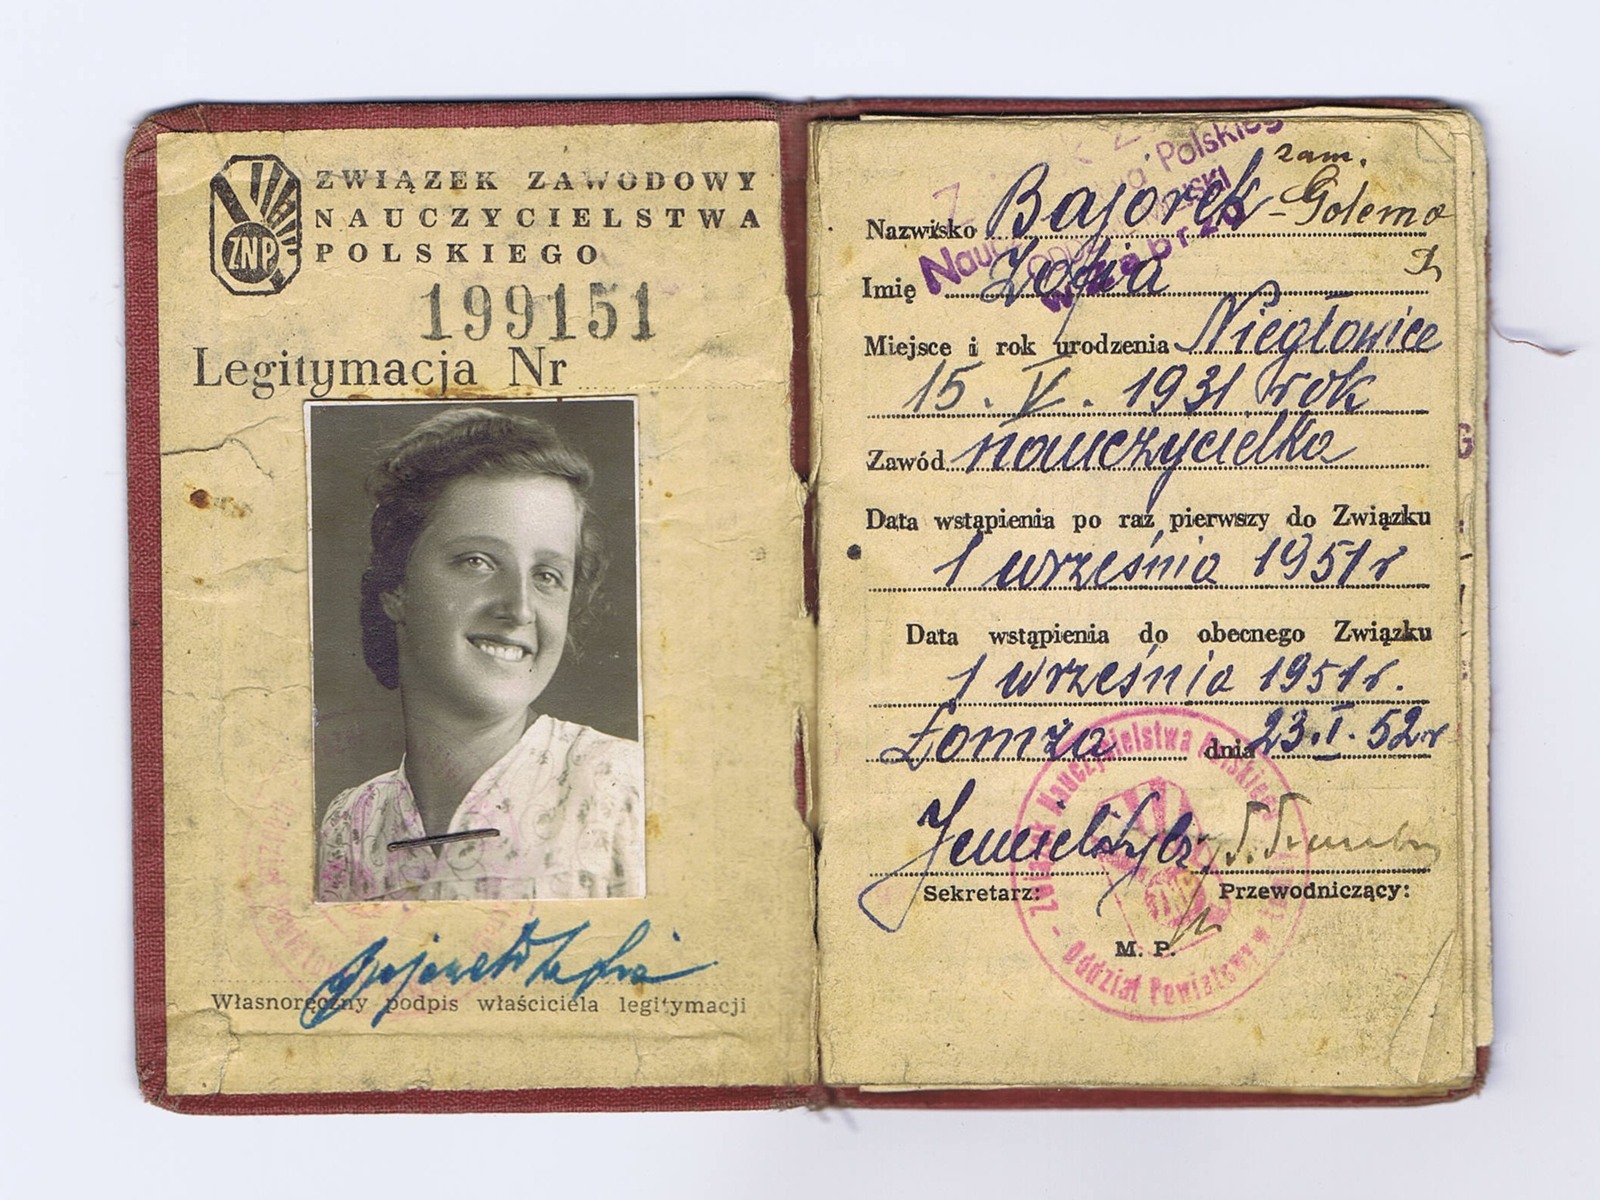 ZNP
ZWIĄZEK ZAWODOWY
NAUCZYCIELSTWA
POLSKIEGO
199151
Legitymacja Nr
Bajorek Zofia
Własnoręczny podpis właściciela legitymacji
Polskieg
Nauc
zam.
Nazwisko Bajorek - Golema
Imię Zofia
Miejsce i rok urodzenia Niegłowice
15. V. 1931 rok
Zawód nauczycielka
Data wstąpienia po raz pierwszy do Związku
1 września 1951 r
Data wstąpienia do obecnego Związku
1 września 1951 r.
Łomża dnia 23.I.52 r
Sekretarz: Przewodniczący:
M. P.
Związek Nauczycielstwa Polskiego
Oddział Powiatowy w